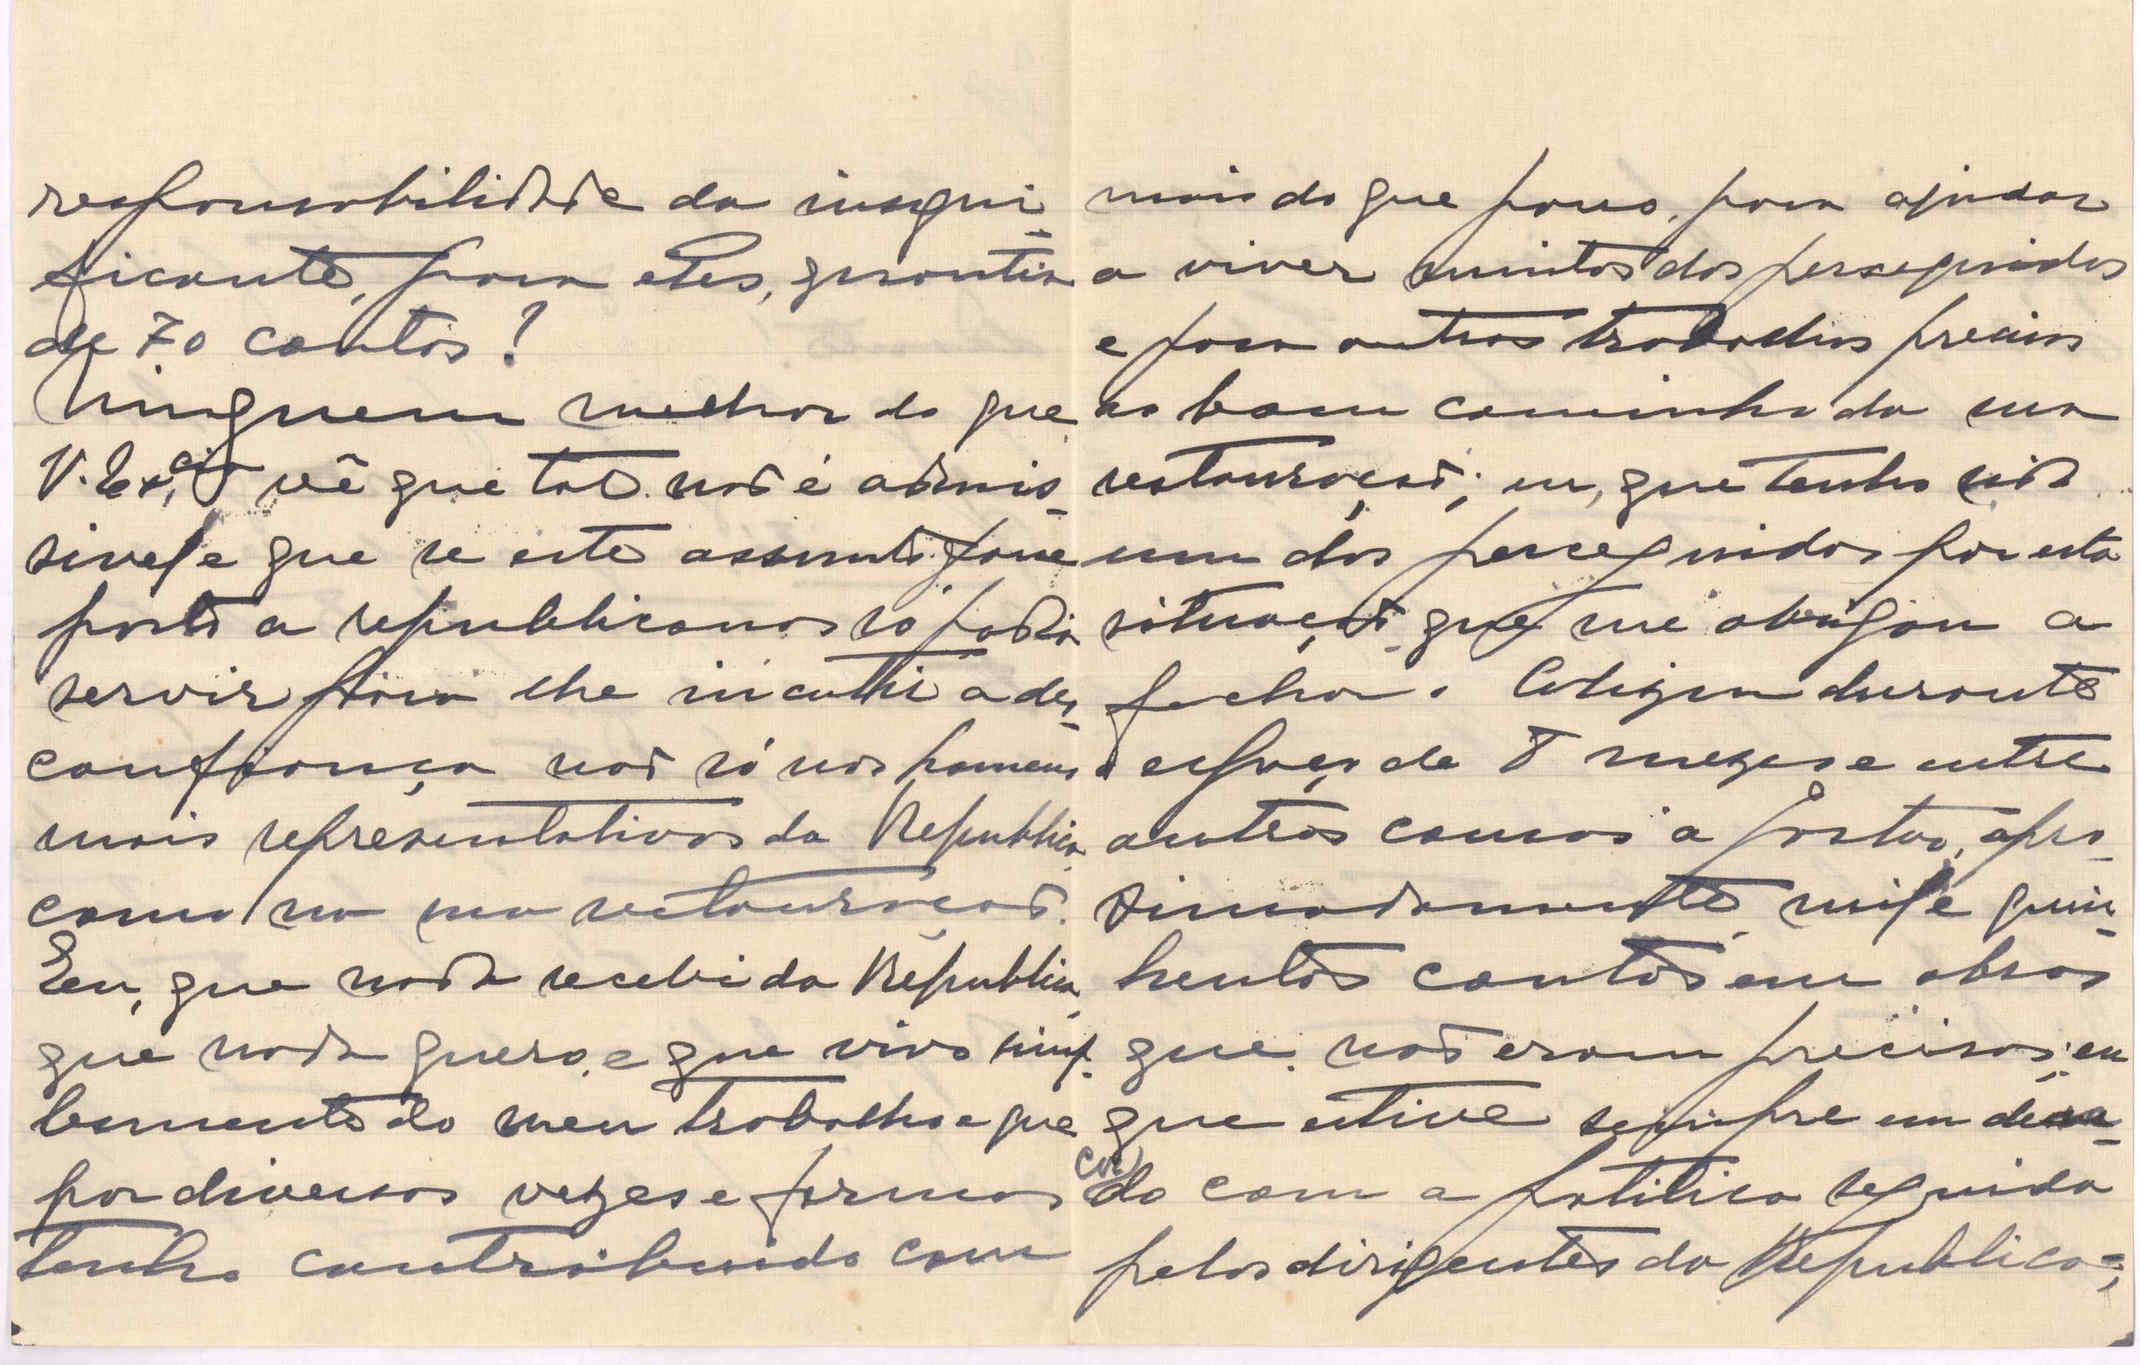 responsabilidade da insigni-
ficante, para eles, garantia
de 70 contos?
Ninguem melhor do que
V. Ex.cia vê que tal não é admis-
sivel e que se este assunto fosse
posto a republicanos só podia
servir para lhe incutir a des-
confiança não só nos homens
mais representativos da Republica
como na sua restauração.
Eu, que nada recebi da Republica,
que nada quero, e que vivo simp-
lesmente do meu trabalho e que
por diversas vezes e formas
tenho contribuido com
mais do que posso, para ajudar
a viver muitos dos perseguidos
e para outros trabalhos precisos
ao bom caminho da sua
restauração; eu, que tenho sido
um dos perseguidos por esta
situação que me obrigou a
fechar o Coliseu durante
o espaço de 8 mezes e entre
outras cousas a gastar, apro-
simadamente, mil e quin-
hentos contos em obras
que não eram precisas; eu
que estive sempre em desa-
cor
do com a politica seguida
pelos dirigentes da Republica;